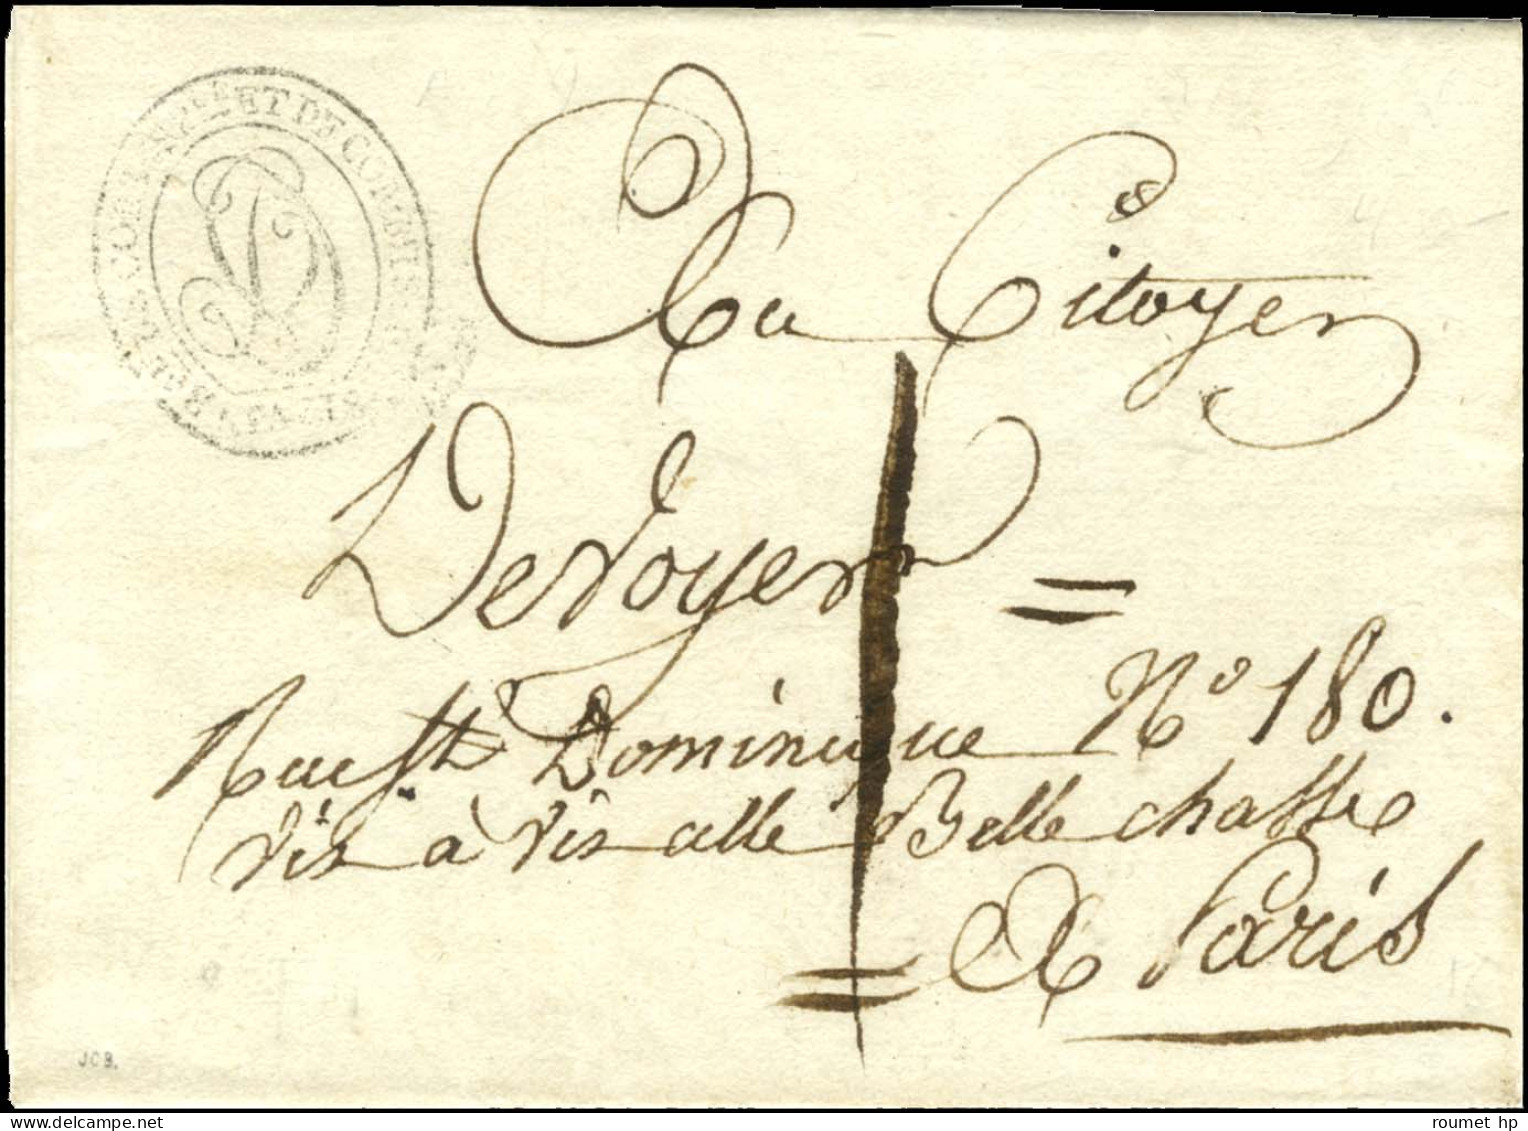 ET DE COMMIS
PARIS
Au Citoyen
DeVoyer =
Rue St Dominique No 180.
Vis à Vis celle Belle chasse
= A Paris
JCB.
roumet hp